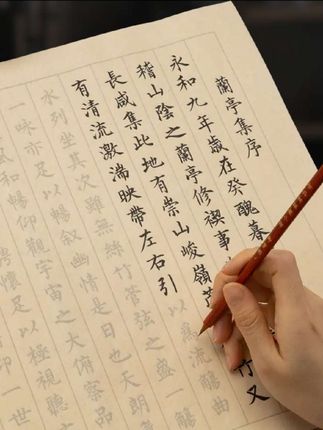 蘭亭集序
永和九年歲在癸醜暮
稽山陰之蘭亭修禊事
長咸集此地有崇山峻嶺茂 竹又
有清流激湍映帶左右引以為流觴曲
水列坐其次雖無絲竹管弦之盛一觴
一咏亦足以暢敘幽情是日也天朗
和暢仰觀宇宙之大俯察品
懷足以極視聽
仰一世